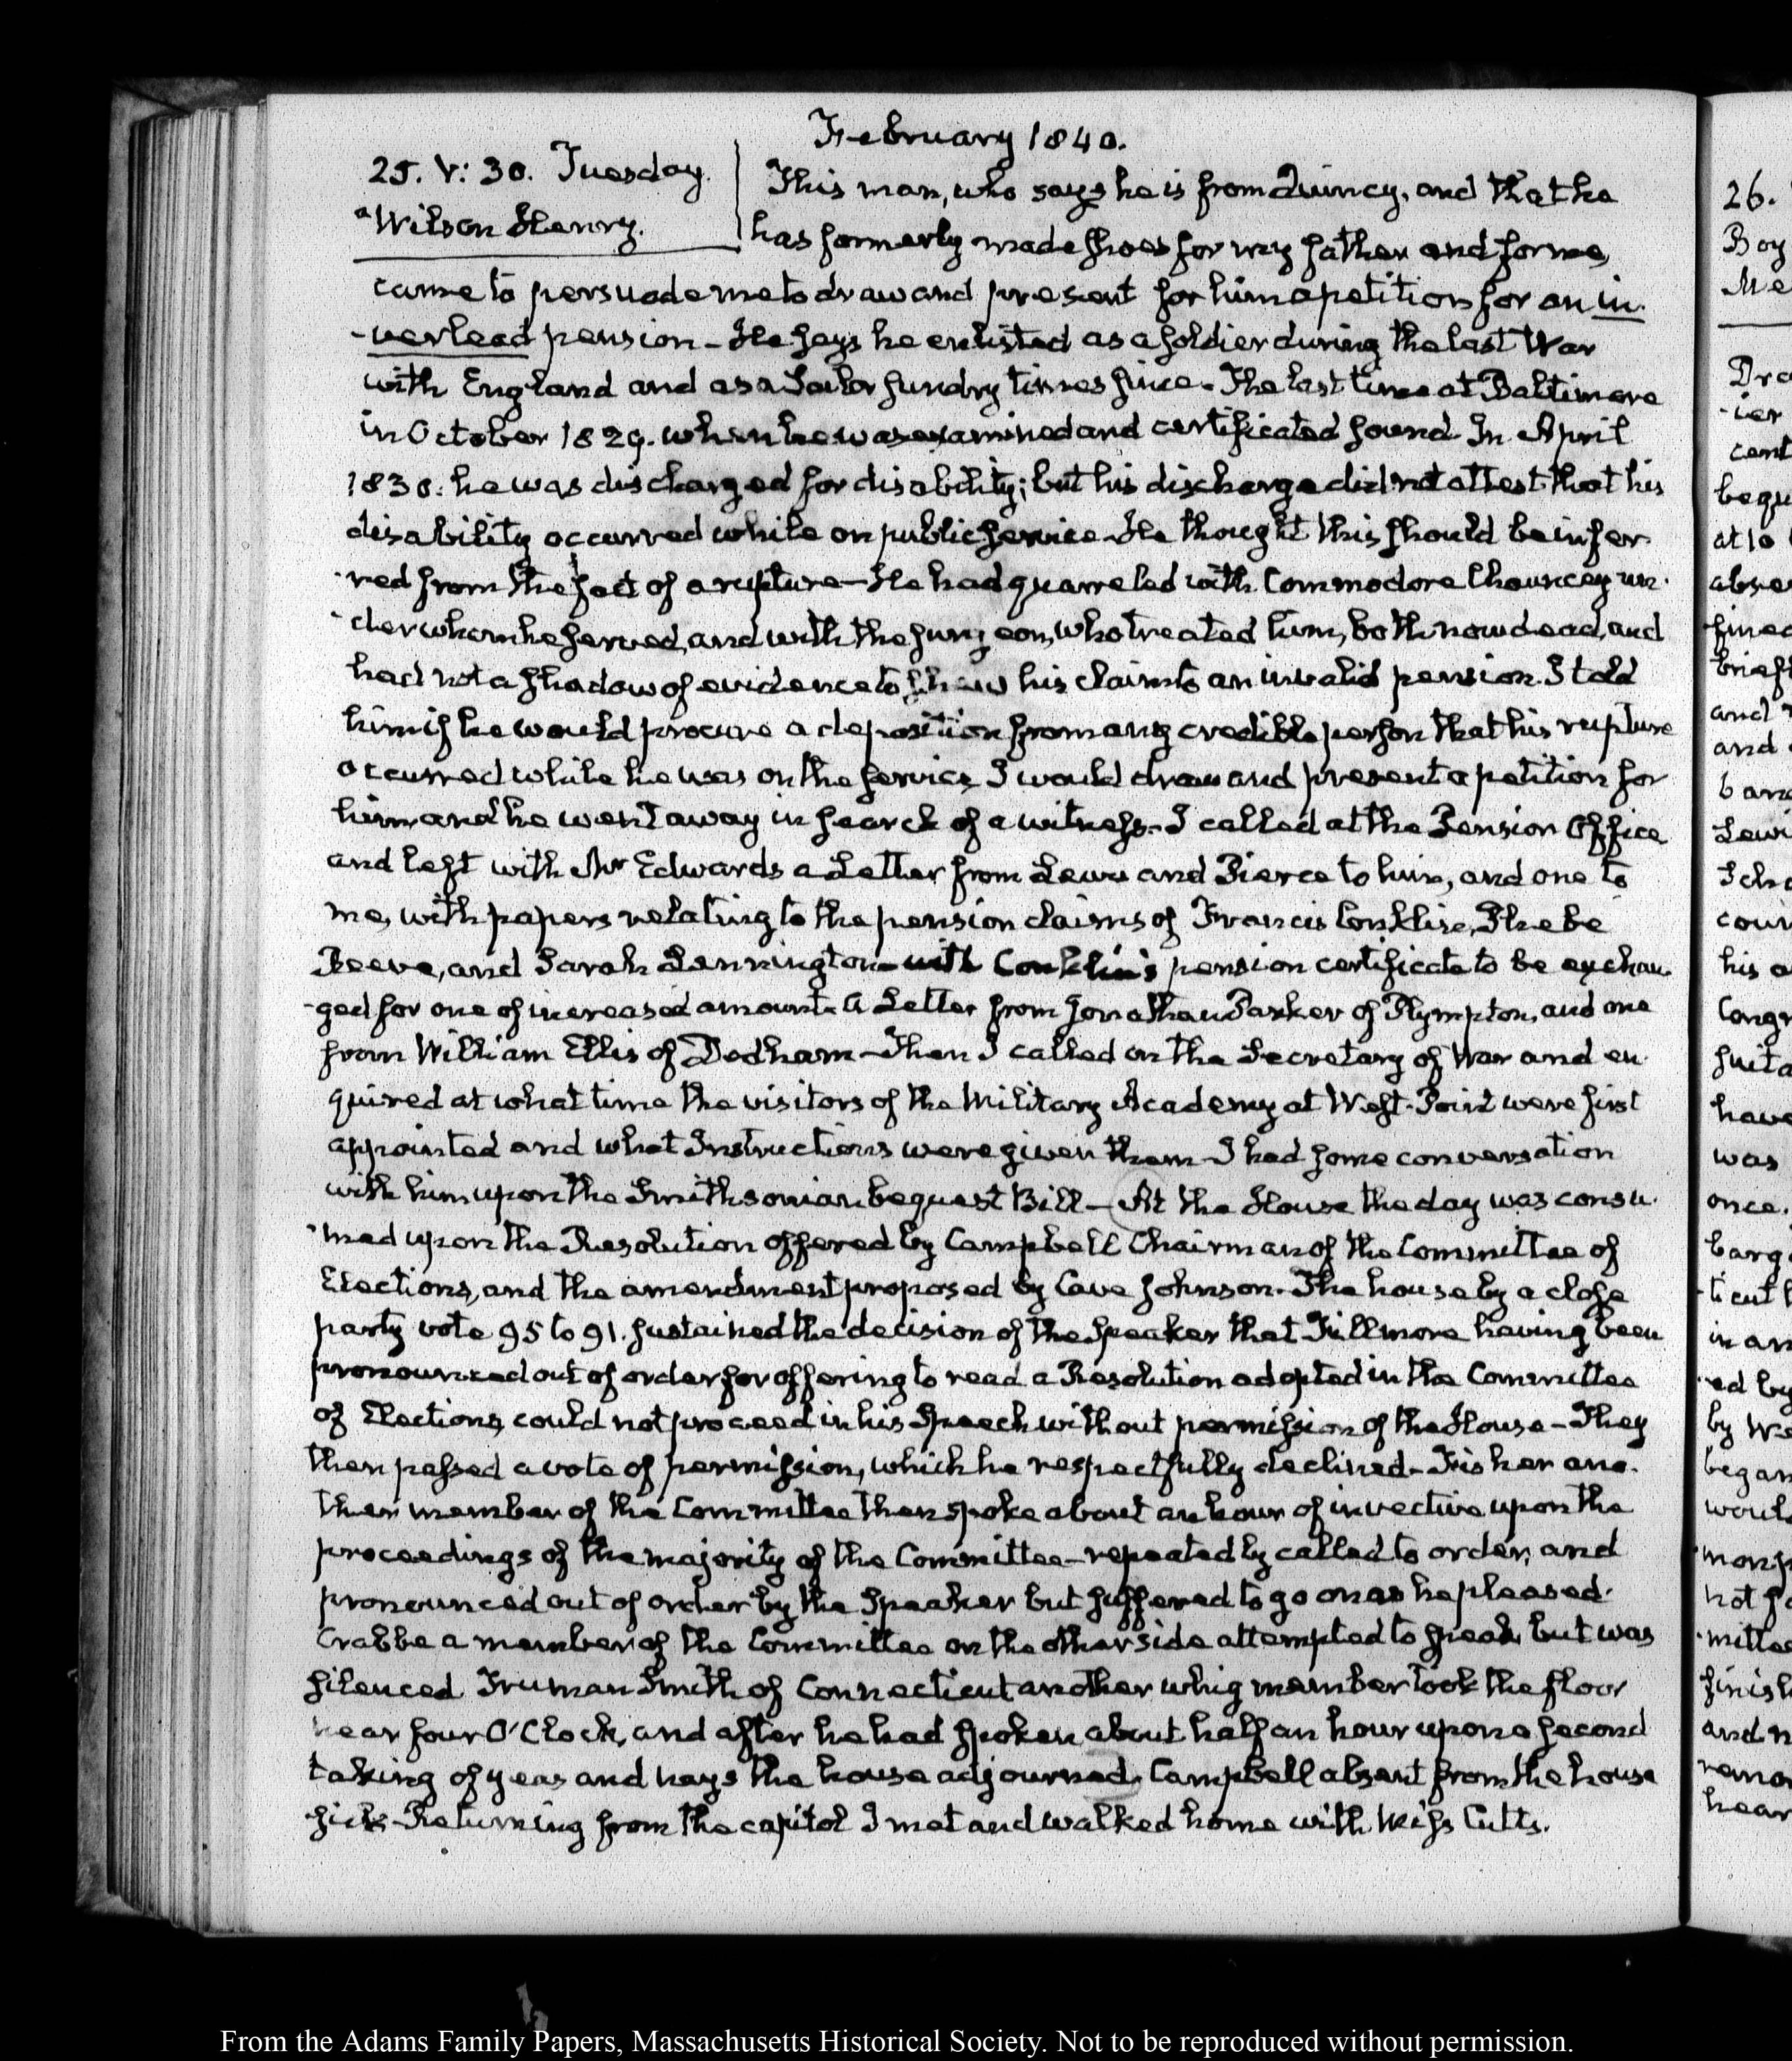 February 1840.
25. V: 30. Tuesday.
Wilson Henry.
This man, who says he is from Quincy, and that he
has formerly made shoes for my father and for me,
came to persuade me to draw and present for him a petition for an in-
-verlead pension – He says he enlisted as a soldier during the last War
with England and as a Sailor sundry times since – The last time at Baltimore
in October 1829. when he was examined and certificated sound. In April
1830. he was discharged for disability; but his discharge did not attest that his
disability occurred while on public service – He thought this should be infer-
-red from the fact of a rupture – He had quarreled with Commodore Chauncey un-
-der whom he served, and with the surgeon, who treated him, both now dead, and
had not a shadow of evidence to shew his claim to an invalid pension. I told
him if he would procure a deposition from any credible person that his rupture
occurred while he was on the service, I would draw and present a petition for
him and he went away in search of a witness – I called at the Pension Office
and left with Mr Edwards a Letter from Lewis and Pierce to him, and one to
me, with papers relating to the pension claims of Francis Conklin, Phebe
Reeve, and Sarah Pennington – with Conklin's pension certificate to be exchan-
-ged for one of increased amount. A Letter from Jonathan Parker of Plympton, and one
from William Ellis of Dedham – Then I called on the Secretary of War and en-
quired at what time the visitors of the Military Academy at West-Point were first
appointed and what Instructions were given them – I had some conversation
with him upon the Smithsonian bequest Bill – At the House the day was consu-
-med upon the Resolution offered by Campbell Chairman of the Committee of
Elections, and the amendment proposed by Cave Johnson. The house by a close
party vote 95 to 91. sustained the decision of the Speaker that Fillmore having been
pronounced out of order for offering to read a Resolution adopted in the Committee
of Elections, could not proceed in his Speech without permission of the House – They
then passed a vote of permission, which he respectfully declined – Fisher ano-
ther member of the Committee then spoke about an hour of invective upon the
proceedings of the majority of the Committee – repeatedly called to order, and
pronounced out of order by the Speaker but suffered to go on as he pleased.
Crabbe a member of the Committee on the other side attempted to speak but was
silenced Truman Smith of Connecticut another whig member took the floor
near four O'Clock, and after he had spoken about half an hour upon a second
taking of yeas and nays the house adjourned. Campbell absent from the house
sick – Returning from the capitol I met and walked home with Miss Cutts.
26.
Boy
Me
From the Adams Family Papers, Massachusetts Historical Society. Not to be reproduced without permission.